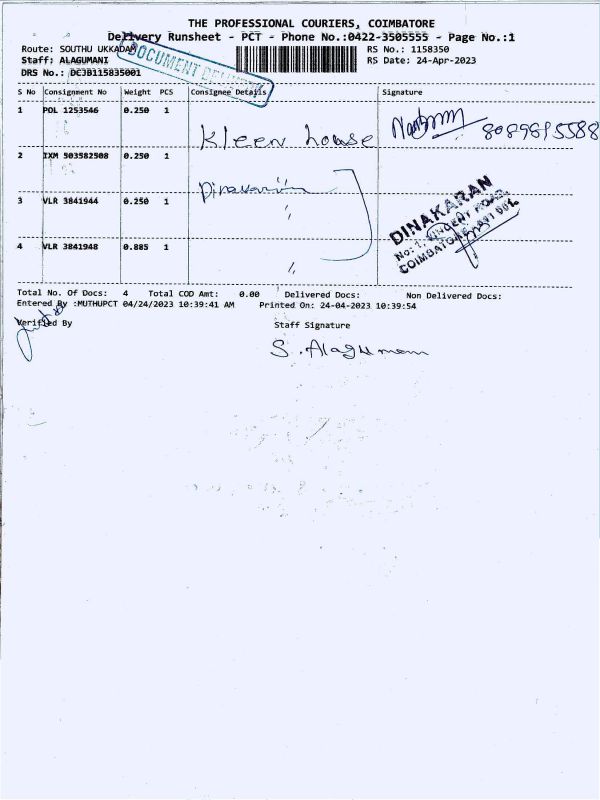 THE PROFESSIONAL COURIERS, COIMBATORE
Delivery Runsheet - PCT - Phone No.:0422-3505555 - Page No.:1
Route: SOUTHU UKKADAM
RS No.: 1158350
Staff: ALAGUMANI
RS Date: 24-Apr-2023
DRS No.: DCJB115835001
DOCUMENT DELIVERY
S No Consignment No Weight PCS Consignee Details Signature
1 POL 1253546 0.250 1
Kleen house 8089615588
2 IXM 503582508 0.250 1
Dinakaran
3 VLR 3841944 0.250 1 "
DINAKARAN
No: 1, ROAD,
COIMBATORE
4 VLR 3841948 0.885 1 "
Total No. Of Docs: 4 Total COD Amt: 0.00 Delivered Docs: Non Delivered Docs:
Entered By :MUTHUPCT 04/24/2023 10:39:41 AM Printed On: 24-04-2023 10:39:54
Verified By Staff Signature
S. Alagumani